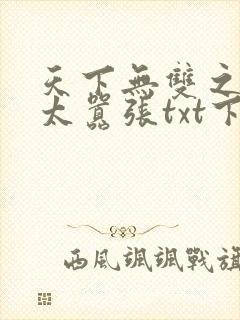 天下無雙之
太囂張txt下
西風颯颯戰旗